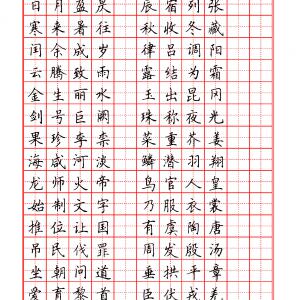 日月盈昃 辰宿列张
寒来暑往 秋收冬藏
闰余成岁 律吕调阳
云腾致雨 露结为霜
金生丽水 玉出昆冈
剑号巨阙 珠称夜光
果珍李柰 菜重芥姜
海咸河淡 鳞潜羽翔
龙师火帝 鸟官人皇
始制文字 乃服衣裳
推位让国 有虞陶唐
吊民伐罪 周发殷汤
坐朝问道 垂拱平章
爱育黎首 臣伏戎羌